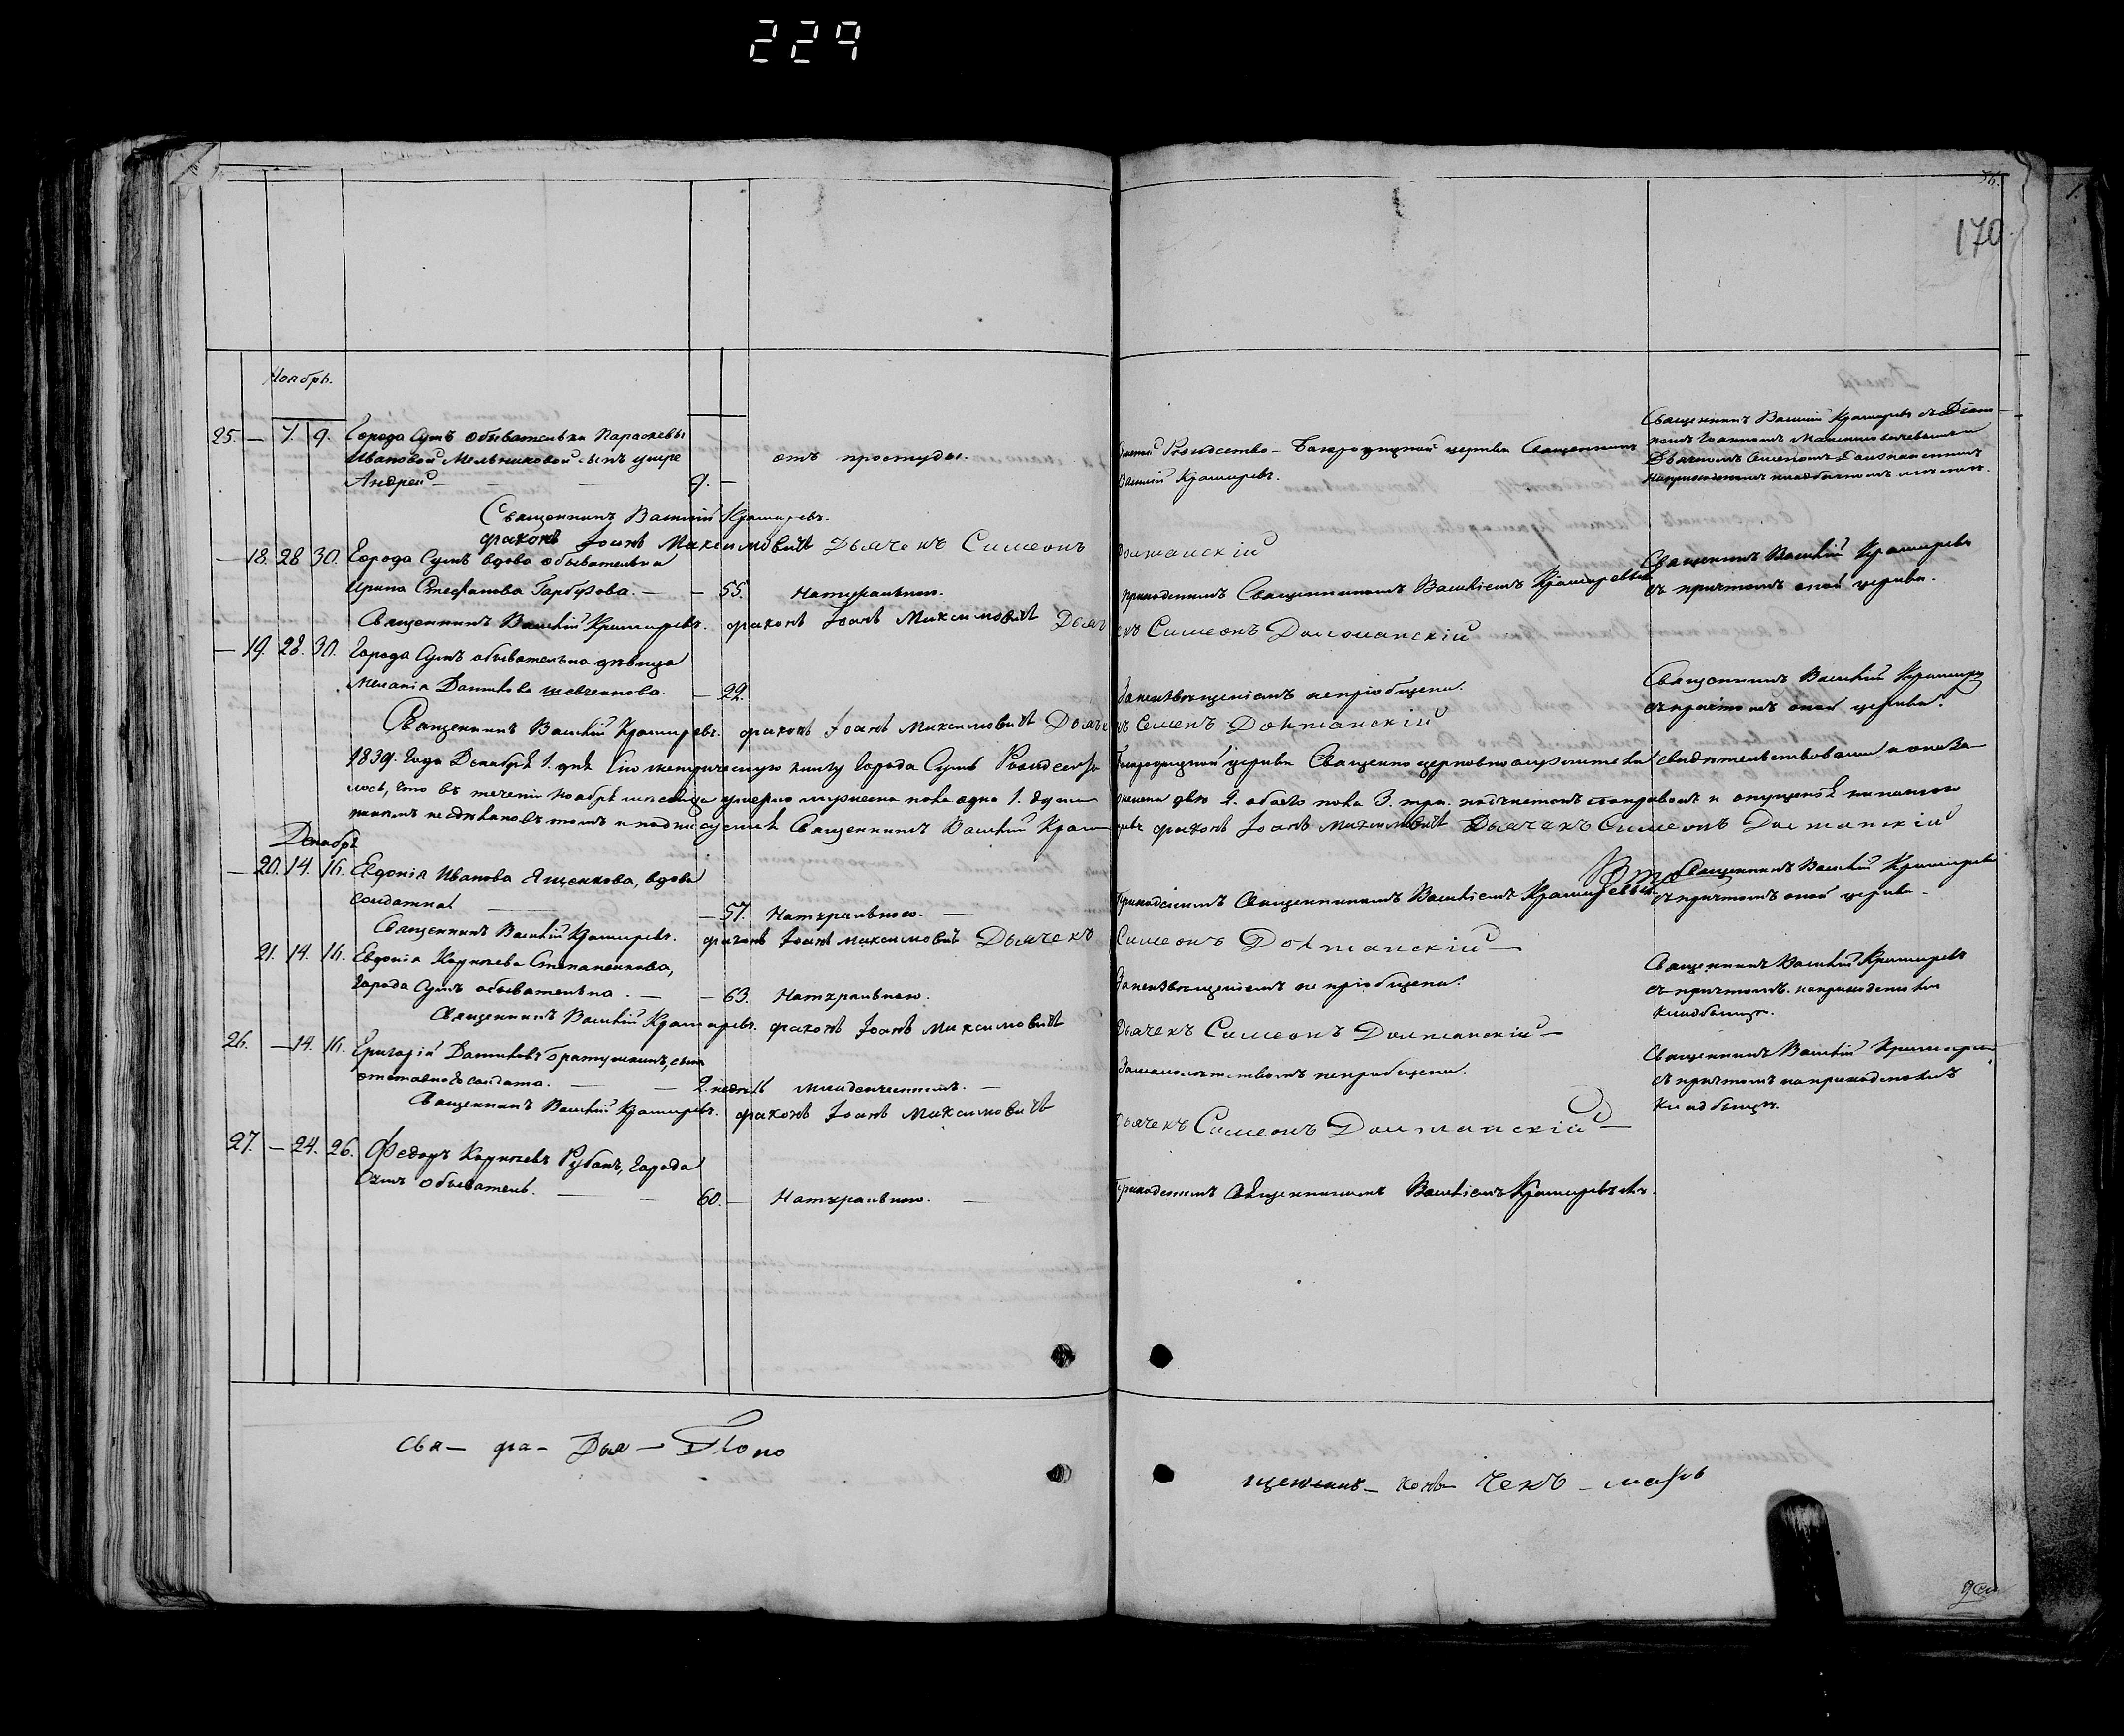 229
36.
170
Ноябрь.
25. — 7. 9. Города Сумъ обывательки Параскевы
Ивановой Мельниковой сынъ умре
Андрей — — — 9. —
отъ простуды.
Рождество-Богородицкой церкви Священникъ
Василій Крамаревъ.
Священникъ Василій Крамаревъ съ Діако-
номъ Іоанномъ Максимовичевымъ и
Дьячкомъ
Священникъ Василій Крамаревъ.
діаконъ Іоанъ Максимовичъ Дьячекъ Симеонъ Должанскій
— 18. 28. 30. Города Сумъ вдова обывателька
Ирина Стефанова Гарбузова. — — 55. Натурально.
Приходскимъ Священникомъ Василіемъ Крамаревымъ
Священникъ Василій Крамаревъ
съ причтомъ оной церкви.
Священникъ Василій Крамаревъ. діаконъ Іоанъ Максимовичъ Дьячекъ Симеонъ Должанскій
— 19. 28. 30. Города Сумъ обывателька дѣвица
Меланія Данилова Шевченкова. — 22.
За неизвѣщеніемъ непріобщена.
Священникъ Василій Крамаревъ
съ причтомъ оной церкви.
Священникъ Василій Крамаревъ. діаконъ Іоанъ Максимовичъ Дьячекъ Семенъ Должанскій
1839. Года Декабря 1. дня Сію метрическую книгу Города Сумъ Рождество Богородицкой церкви Священно церковнослужители свидѣтельствовали и оказа-
лось, что въ теченіи Ноября мѣсяца умерло мужеска пола одна 1. душа женска двѣ 2. обоего пола 3. три.
въ томъ и подписуемся Священникъ Василій Крамаревъ діаконъ Іоанъ Максимовичъ Дьячекъ Симеонъ Должанскій
Декабрь
— 20. 14. 16. Евдокія Иванова Ященкова, вдова
солдатка. — 57. Натурально. —
Приходскимъ Священникомъ Василіемъ Крамаревымъ
Священникъ Василій Крамаревъ
съ причтомъ оной церкви —
Священникъ Василій Крамаревъ. діаконъ Іоанъ Максимовичъ Дьячекъ Симеонъ Должанскій —
21. 14. 16. Евдокія Корнѣева Степаненкова,
Города Сумъ обывателька. — — 63. Натурально.
За неизвѣщеніемъ не пріобщена.
Священникъ Василій Крамаревъ
съ причтомъ на приходскомъ
кладбищѣ.
Священникъ Василій Крамаревъ. діаконъ Іоанъ Максимовичъ Дьячекъ Симеонъ Должанскій —
26. — 14. 16. Григорій Даниловъ Братушкинъ, сынъ
отставного солдата. — — 2. недѣль младенческимъ. —
За малолѣтствомъ непріобщенъ.
Священникъ Василій Крамаревъ
съ причтомъ на приходскомъ
кладбищѣ.
Священникъ Василій Крамаревъ. діаконъ Іоанъ Максимовичъ Дьячекъ Симеонъ Должанскій —
27. — 24. 26. Федоръ Корнѣевъ Рубанъ, Города
Сумъ обыватель. — — 60. — Натурально. —
Приходскимъ Священникомъ Василіемъ Крамаревымъ.
Свя— діа— Дья— Поно
щенникъ— конъ— чекъ— марь